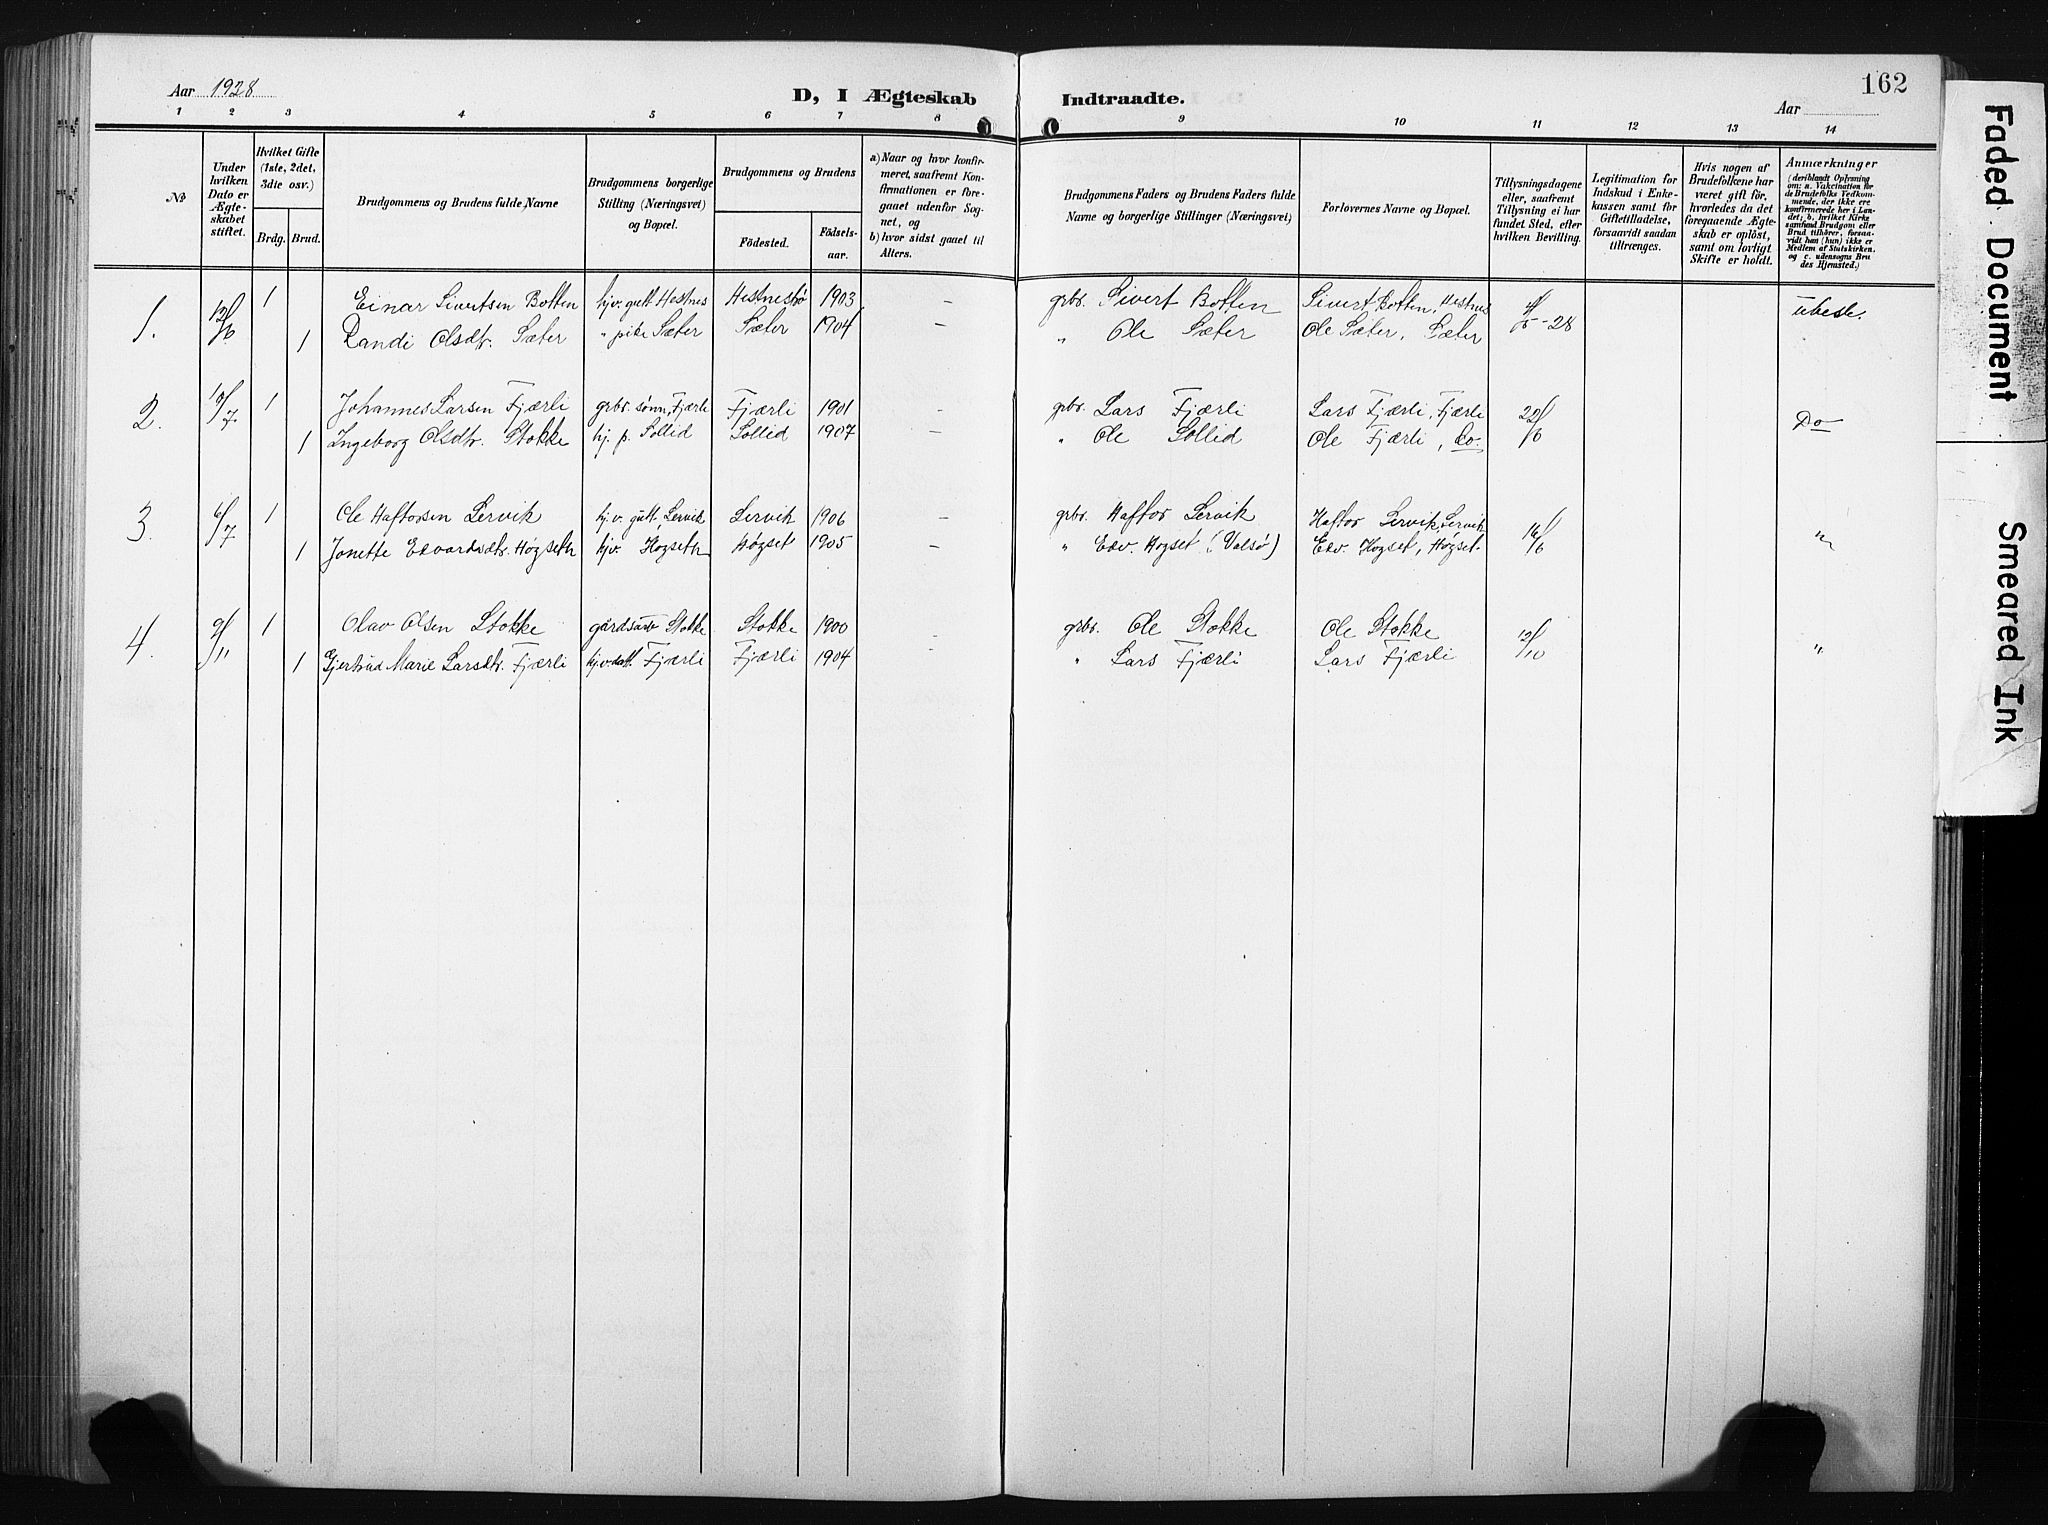 162
Aar 1928
D, I Ægteskab Indtraadte.
Aar
1 2 3 4 5 6 7 8 9 10 11 12 13 14
№
Under hvilken Dato er Ægteskabet stiftet.
Hvilket Gifte (1ste, 2det, 3die osv.)
Brdg. Brud.
Brudgommens og Brudens fulde Navne
Brudgommens borgerlige Stilling (Næringsvei) og Bopæl.
Brudgommens og Brudens
Födested.
Födselsaar.
a) Naar og hvor konfirmeret, saafremt Konfirmationen er foregaaet udenfor Sognet, og
b) hvor sidst gaaet til Alters.
Brudgommens Faders og Brudens Faders fulde Navne og borgerlige Stillinger (Næringsvei)
Forlovernes Navne og Bopæl.
Tillysningsdagene eller, saafremt Tillysning ei har fundet Sted, efter hvilken Bevilling.
Legitimation for Indskud i Enkekassen samt for Giftetilladelse, forsaavidt saadan tiltrænges.
Hvis nogen af Brudefolkene har været gift för, hvorledes da det foregaaende Ægteskab er oplöst, samt om lovligt Skifte er holdt.
Anmærkninger
(deriblandt Oplysning om: a. Vakcination för de Brudefolks Vedkommende, der ikke ere konfirmerede her i Landet; b. hvilket Kirkesamfund Brudgom eller Brud tilhörer, forsaavidt han (hun) ikke er Medlem af Statskirken. og c. udensogns Brudes Hjemsted.)
1. 12/6 1 Einar Sivertsen Botten hjv. gutt Hestnes Hestnes 1903 — grbr. Sivert Botten Sivert Botten, Hestnes 4/5-28 ubesl.
1 Randi Olsdtr. Sæter " pike Sæter Sæter 1904 — " Ole Sæter Ole Sæter, Sæter
2. 10/7 1 Johannes Larsen Fjærli grbr. sønn, Fjærli Fjærli 1901 — grbr. Lars Fjærli Lars Fjærli, Fjærli 22/6 Do
1 Ingeborg Olsdtr. Stokke hj. p. Sollid Sollid 1907 — " Ole Sollid Ole Fjærli, do.
3. 6/7 1 Ole Haftorsen Lervik hj.v. gutt, Lervik Lervik 1906 — grbr. Haftor Lervik Haftor Lervik, Lervik 16/6 "
1 Jonette Edvardsdtr. Høgseth hjv. Hogseth Høgset 1905 — " Edv. Hogset (Valsø) Edv. Hogset, Høgset
4. 9/11 1 Olav Olsen Stokke gårdsarb Stokke Stokke 1900 — grbr. Ole Stokke Ole Stokke 12/10 "
1 Gjertrud Marie Larsdtr. Fjærli hj.v.datt. Fjærli Fjærli 1904 — " Lars Fjærli Lars Fjærli
Faded Document
Smeared Ink